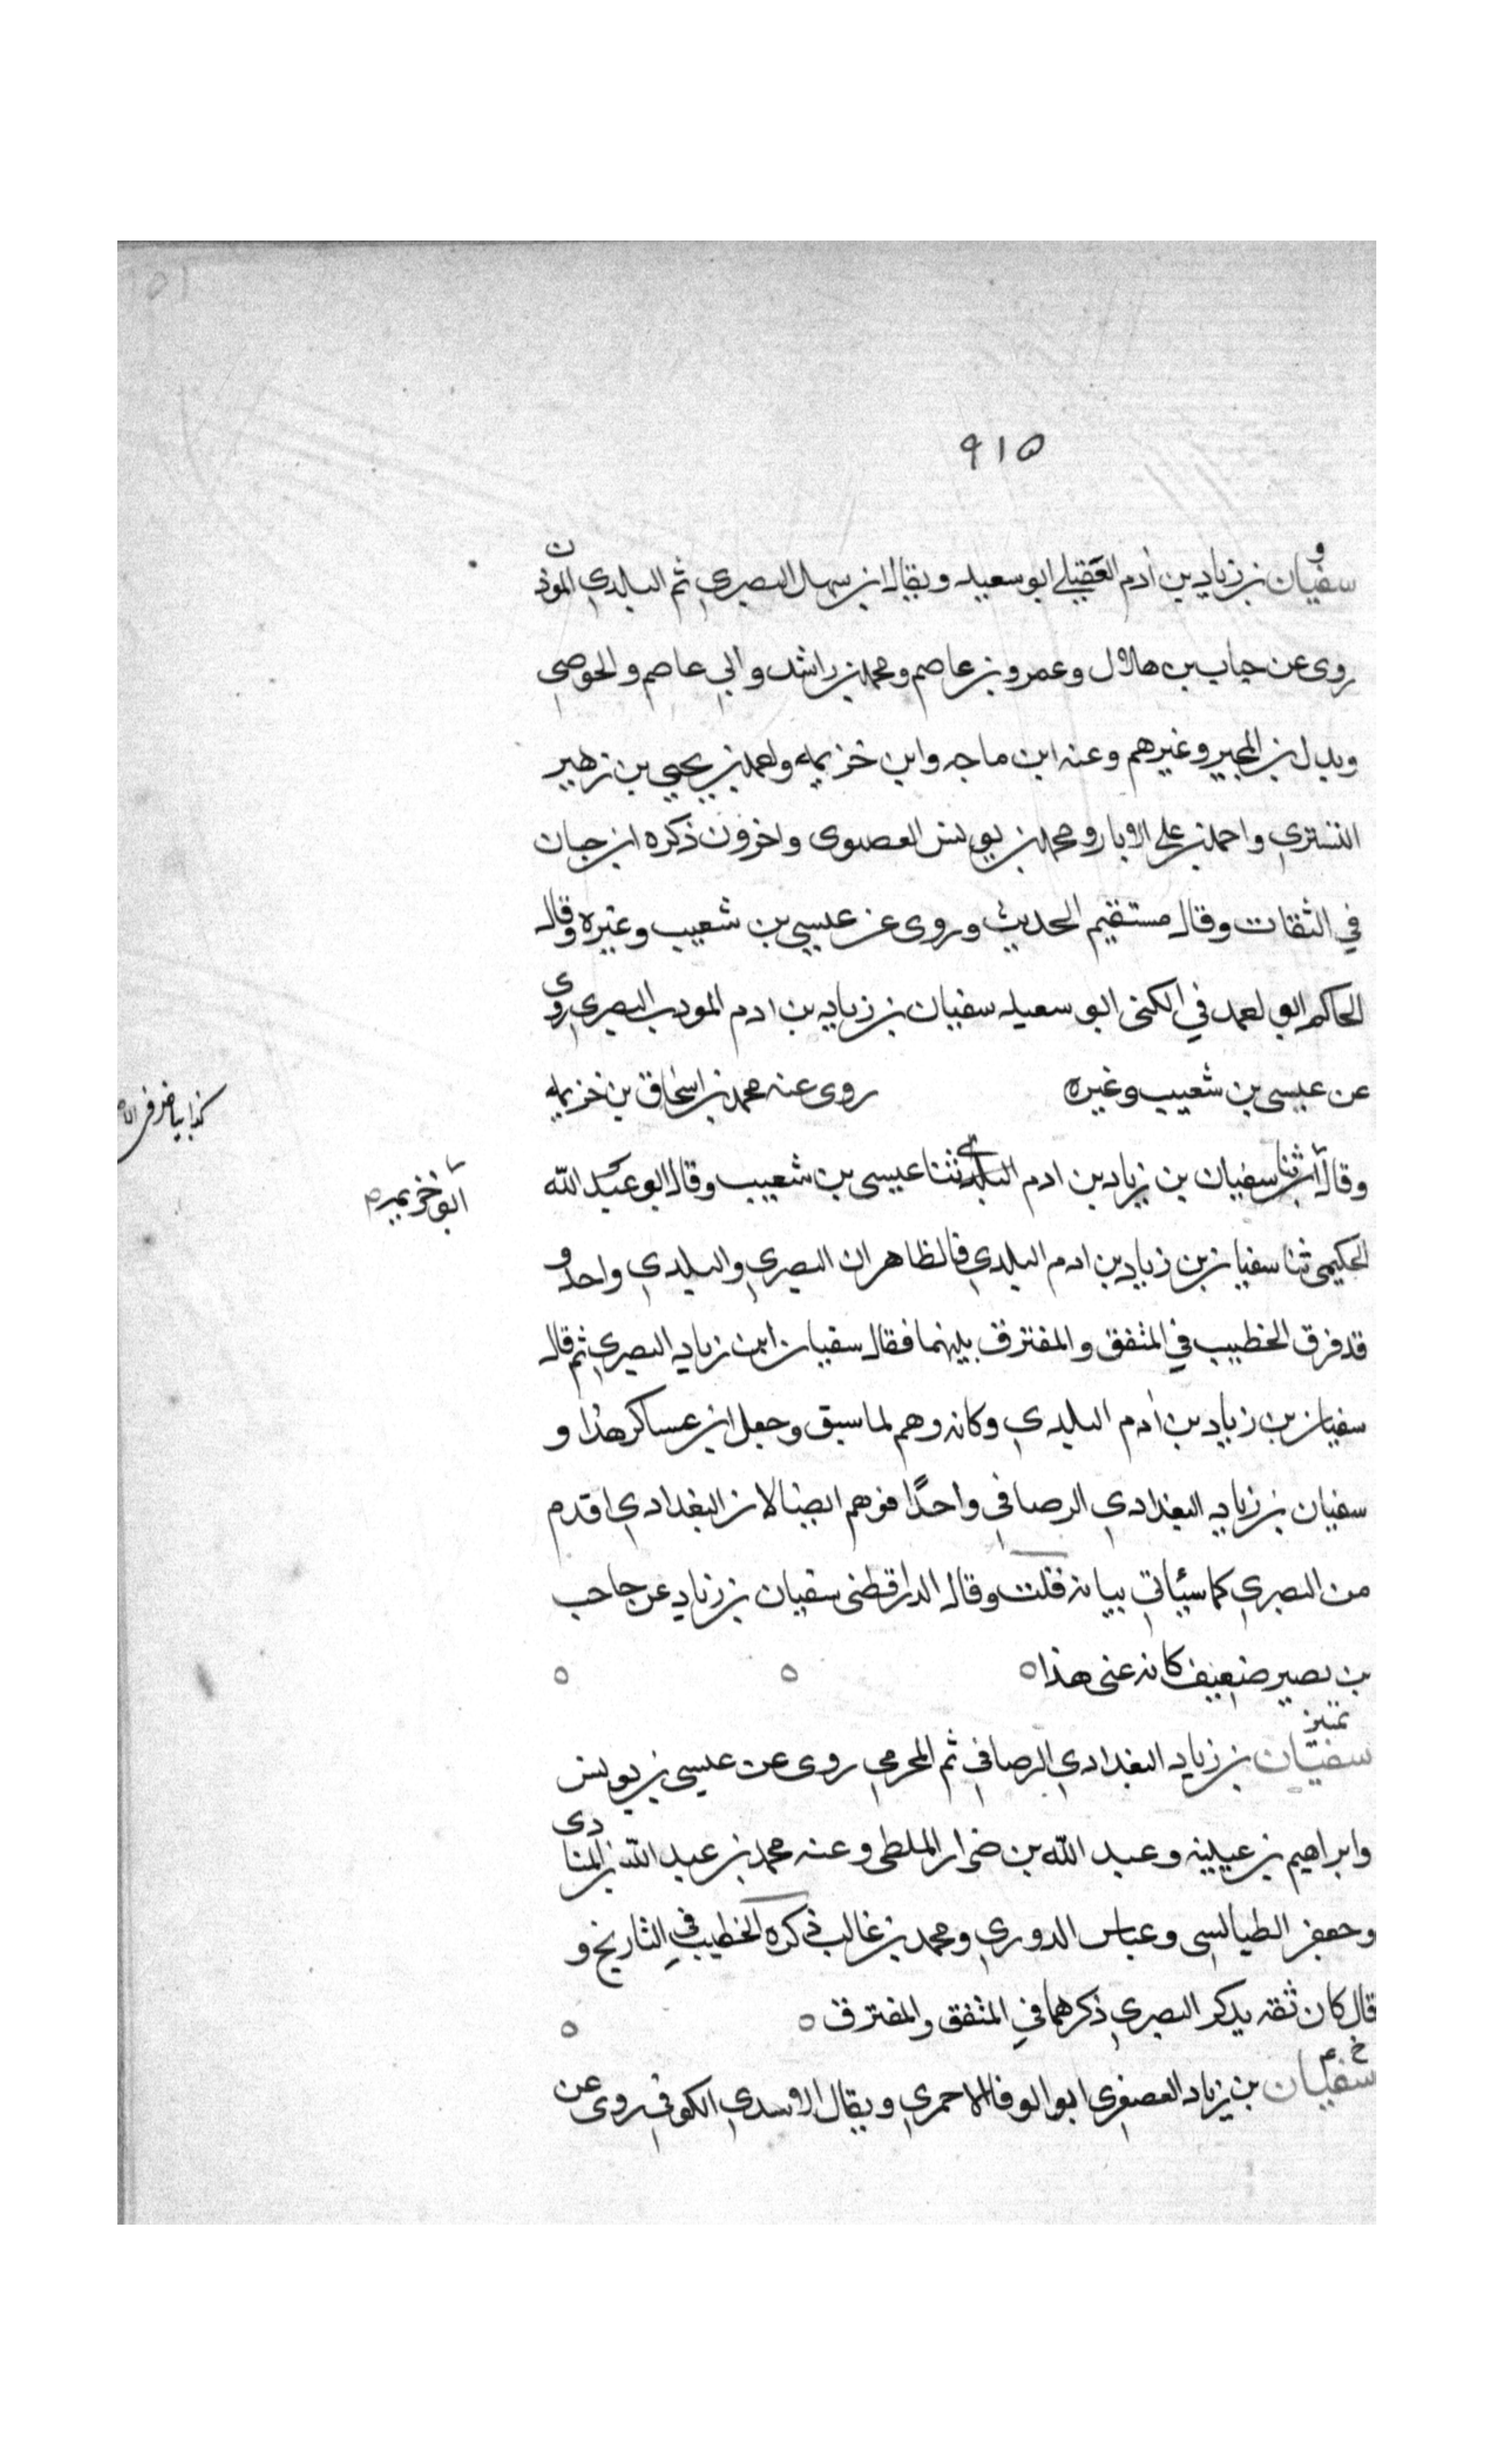 ٩١٥
ق
سفيان بن زياد بن أدم العقيلي ابو سعيد ويقال ابن سهل البصري ثم البلدي المؤذن
روى عن حبان بن هلال وعمرو بن عاصم ومحمد بن راشد وابي عاصم والحوضي
وبدل بن المحبر وغيرهم وعنه ابن ماجه وابن خزيمه واحمد بن يحيي بن زهير
التستري واحمد بن علي الابار ومحمد بن يونس العصفرى واخرون ذكره ابن حبان
في الثقات وقال مستقيم الحديث وروى عن عيسي بن شعيب وغيره وقال
الحاكم ابو احمد في الكنى ابو سعيد سفيان بن زياد بن ادم المودب البصري روى
عن عيسى بن شعيب وغيره روى عنه محمد بن اسحاق بن خزيمه
كذا بياض في
وقال ثنا سفيان بن زياد بن ادم البلدي ثنا عيسى بن شعيب وقال ابو عبد الله
ابن خزيمه
الحكيمى ثنا سفيان بن زياد بن ادم البلدي فالظاهر ان البصري والبلدي واحد و
قد فرق الخطيب في المتفق والمفترق بينهما فقال سفيان ابن زياد البصري ثم قال
سفيان بن زياد بن أدم البلدي وكانه وهم لما سبق وجعل ابن عساكر هذا و
سفيان بن زياد البغدادي الرصافي واحدًا فوهم ايضا لان البغدادي اقدم
من البصري كما سيأتي بيانه قلت وقال الدارقطنى سفيان بن زياد عن حاجب
بن نصير ضعيف كانه عنى هذا ٥ ٥ ٥
تمييز
سفيان بن زياد البغدادي الرصافي ثم المخرمي روى عن عيسى بن يونس
وابراهيم بن عيينه وعبد الله بن ضرار الملطى وعنه محمد بن عبد الله بن المنادى
وجعفر الطيالسى وعباس الدوري ومحمد بن غالب ذكره الخطيب في التاريخ و
قال كان ثقه يذكر البصري ذكرهما في المتفق والمفترق ٥ ٥
خ ع
سفيان بن زياد العصفري ابو الوفا الاحمري ويقال الاسدي الكوفي روى عن